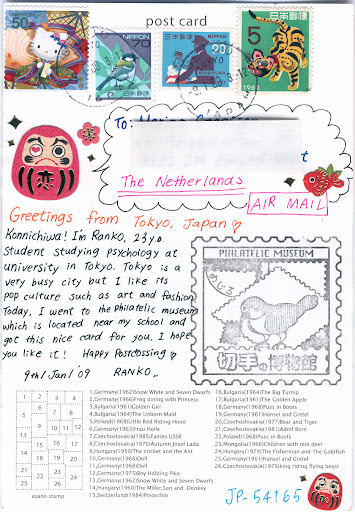 post card
50
NIPPON
70
日本郵便
日本郵便
90
NIPPON
5
日本郵便
1962
To:
The Netherlands
AIR MAIL
恋
Greetings from Tokyo, Japan
Konnichiwa! I'm Ranko, 23 y.o.
Student studying psychology at
university in Tokyo. Tokyo is a
very busy city but I like its
pop culture such as art and fashion.
Today, I went to the philatelic museum
which is located near my school and
got this nice card for you. I hope
you like it! Happy Postcrossing
9th/Jan/'09 RANKO..
PHILATELIC MUSEUM
めじろ
切手の博物館
1 2 3 4 5 6
1,Germany(1962)now White and Seven Dwarfs
2,Germany(1966)Frog dining with Princess
3,Bulgaria(1961)Golden Girl
4,Bulgaria(1964)The Unborn Maid
5,Poland(1968)Little Red Riding Hood
6,Germany(1965)Frau Holle
7,Czechoslovakia(1985)Fairies USSR
8,Czechoslovakia(1970)Autumn Josef Lada
9,Hungary(1959)The cricket and the Ant
10,Germany(1968)Doll
11,Germany(1968)Doll
13,Germany(1971)Boy Holding Pike
12,Germany(1962)now White and Seven Dwarfs
14,Hungary(1960)The Miller,Son and Donkey
15,Switzerland(1984)Pinocchio
16,Bulgaria(1964)The Big Turnip
17,Bulgaria(1961)The Golden Apple
18,Germany(1968)Puss in Boots
19,Germany(1961)Hansel and Gretel
20,Czechoslovakia(1977)Bear and Tiger
21,Czechoslovakia(1981)Adolf Born
22,Poland(1968)Puss in Boots
23,Mongolia(1966)Children with rein deer
24,Hungary(1959)The Fisherman and The Goldfish
25,Germany(1961)Hansel and Gretel
26,Czechoslovakia(1979)king riding flying beast
asano stamp
JP-54165